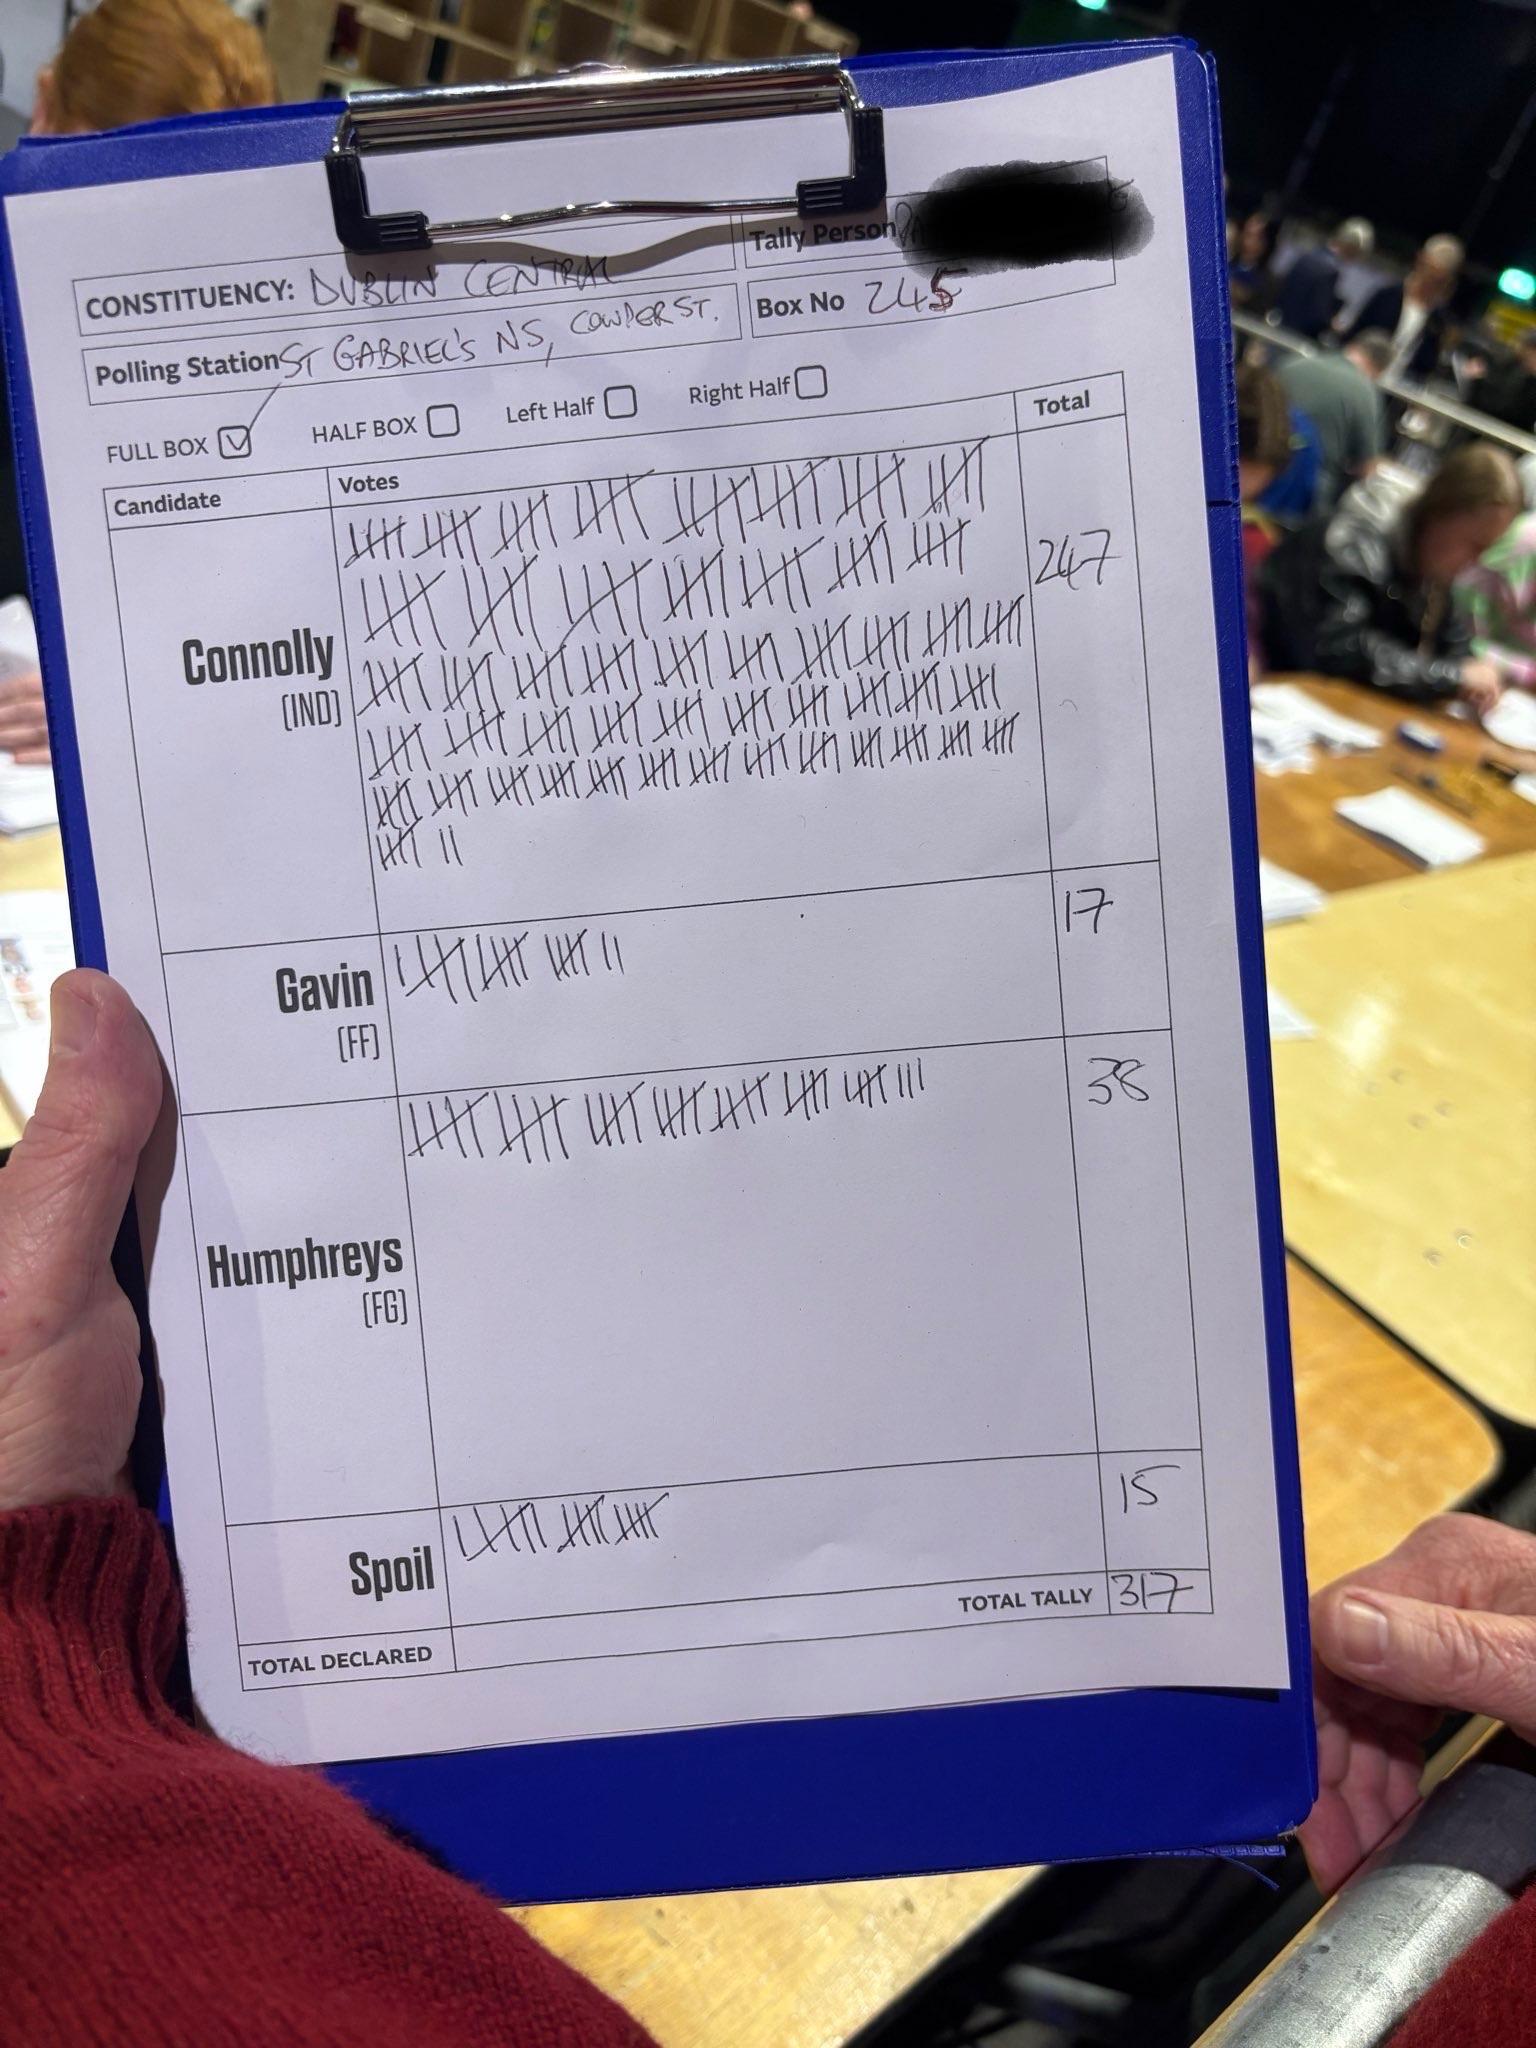 Tally Person
CONSTITUENCY: DUBLIN CENTRAL
Box No 245
Polling Station ST GABRIEL'S NS, COWPER ST.
FULL BOX HALF BOX Left Half Right Half
Candidate Votes Total
Connolly 247
(IND)
Gavin 17
(FF)
Humphreys 38
(FG)
Spoil 15
TOTAL TALLY 317
TOTAL DECLARED